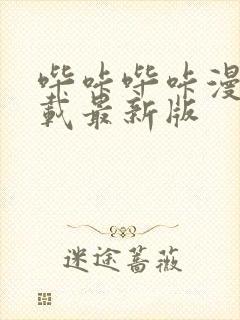 哔咔哔咔漫
载最新版
迷途蔷薇